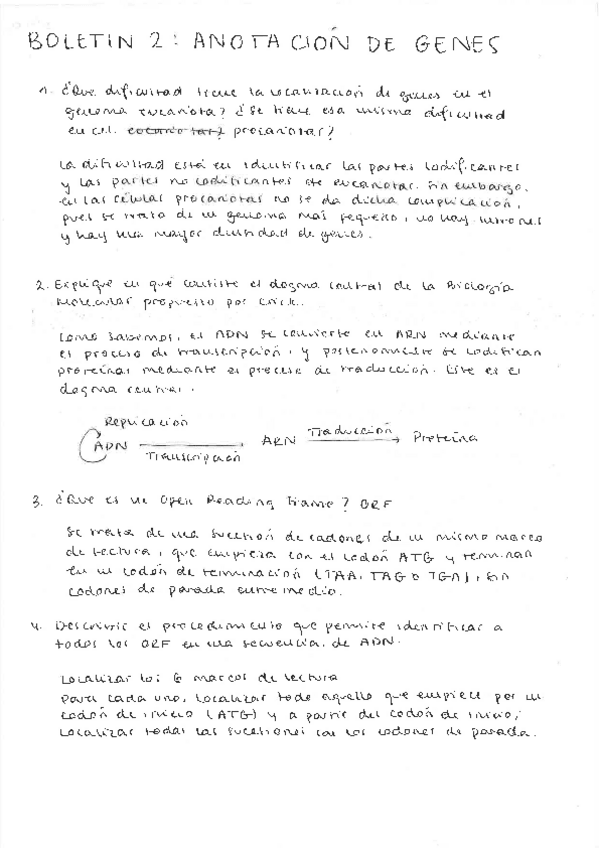 BOLETIN 2: ANOTACIÓN DE GENES
1. ¿Que dificultad tiene la localización de genes en el
genoma eucariota? ¿Se tiene esa misma dificultad
en cél. procariotas?
La dificultad está en identificar las partes codificantes
y las partes no codificantes de eucariotas. Sin embargo,
en las células procariotas no se da dicha complicación,
pues se trata de un genoma más pequeño, no hay intrones
y hay una mayor densidad de genes.
2. Explique en qué consiste el dogma central de la Biología
Molecular propuesto por Crick.
Como sabemos, el ADN se convierte en ARN mediante
el proceso de transcripción, y posteriormente se codifican
proteínas mediante el proceso de traducción. Este es el
dogma central.
Replicación
ADN
Transcripción
ARN
Traducción
Proteína
3. ¿Que es un Open Reading Frame? ORF
Se trata de una sucesión de codones de un mismo marco
de lectura, que empieza con el codón ATG y terminan
en un codón de terminación (TAA, TAG o TGA), sin
codones de parada entre medio.
4. Describir el procedimiento que permite identificar a
todos los ORF en una secuencia de ADN.
Localizar los 6 marcos de lectura
Para cada uno, localizar todo aquello que empiece por un
codón de inicio (ATG) y a partir del codón de inicio,
localizar todas las sucesiones con los codones de parada.